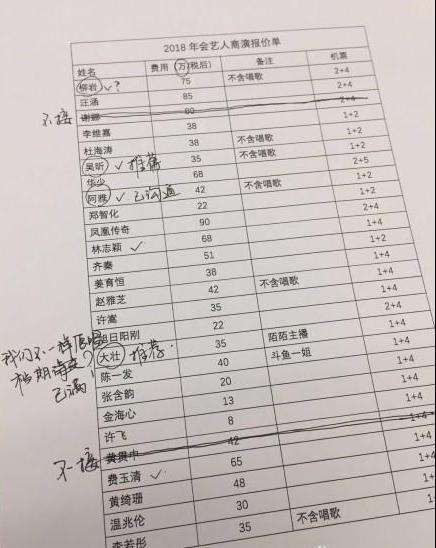 2018 年会艺人商演报价单
姓名 费用（万/税后） 备注 机票
柳岩 ✓? 75 不含唱歌 2+4
汪涵 85 2+4
不接 谢娜 60 2+4
李维嘉 38 1+2
杜海涛 38 不含唱歌 1+2
吴昕 ✓ 推荐 35 不含唱歌 1+2
华少 68 2+5
阿雅 ✓ 已沟通 42 不含唱歌 1+2
郑智化 22 1+2
凤凰传奇 90 2+4
林志颖 ✓ 68 1+4
齐秦 51 1+2
姜育恒 38 1+4
赵雅芝 42 不含唱歌 1+4
许嵩 35 1+4
旭日阳刚 22 2+4
我们不一样
档期
已满！
大壮 推荐 35 陌陌主播 1+4
陈一发 40 斗鱼一姐 1+4
张含韵 20 1+4
金海心 13 1+4
许飞 8 1+4
不接 黄贯中 42 1+4
费玉清 ✓ 65 1+4
黄绮珊 48 1+4
温兆伦 30 1+4
李若彤 35 不含唱歌